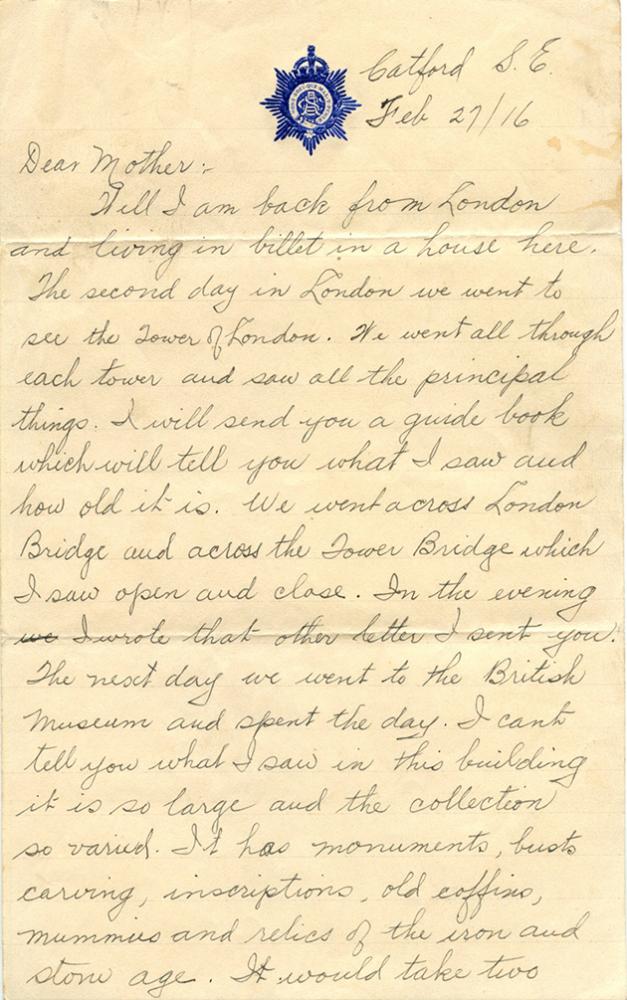 Catford S.E.
Feb 27/16
Dear Mother:-
Well I am back from London
and living in billet in a house here.
The second day in London we went to
see the Tower of London. We went all through
each tower and saw all the principal
things. I will send you a guide book
which will tell you what I saw and
how old it is. We went across London
Bridge and across the Tower Bridge which
I saw open and close. In the evening
we I wrote that other letter I sent you.
The next day we went to the British
Museum and spent the day. I cant
tell you what I saw in this building
it is so large and the collection
so varied. It has monuments, busts
carving, inscriptions, old coffins,
mummies and relics of the iron and
stone age. It would take two